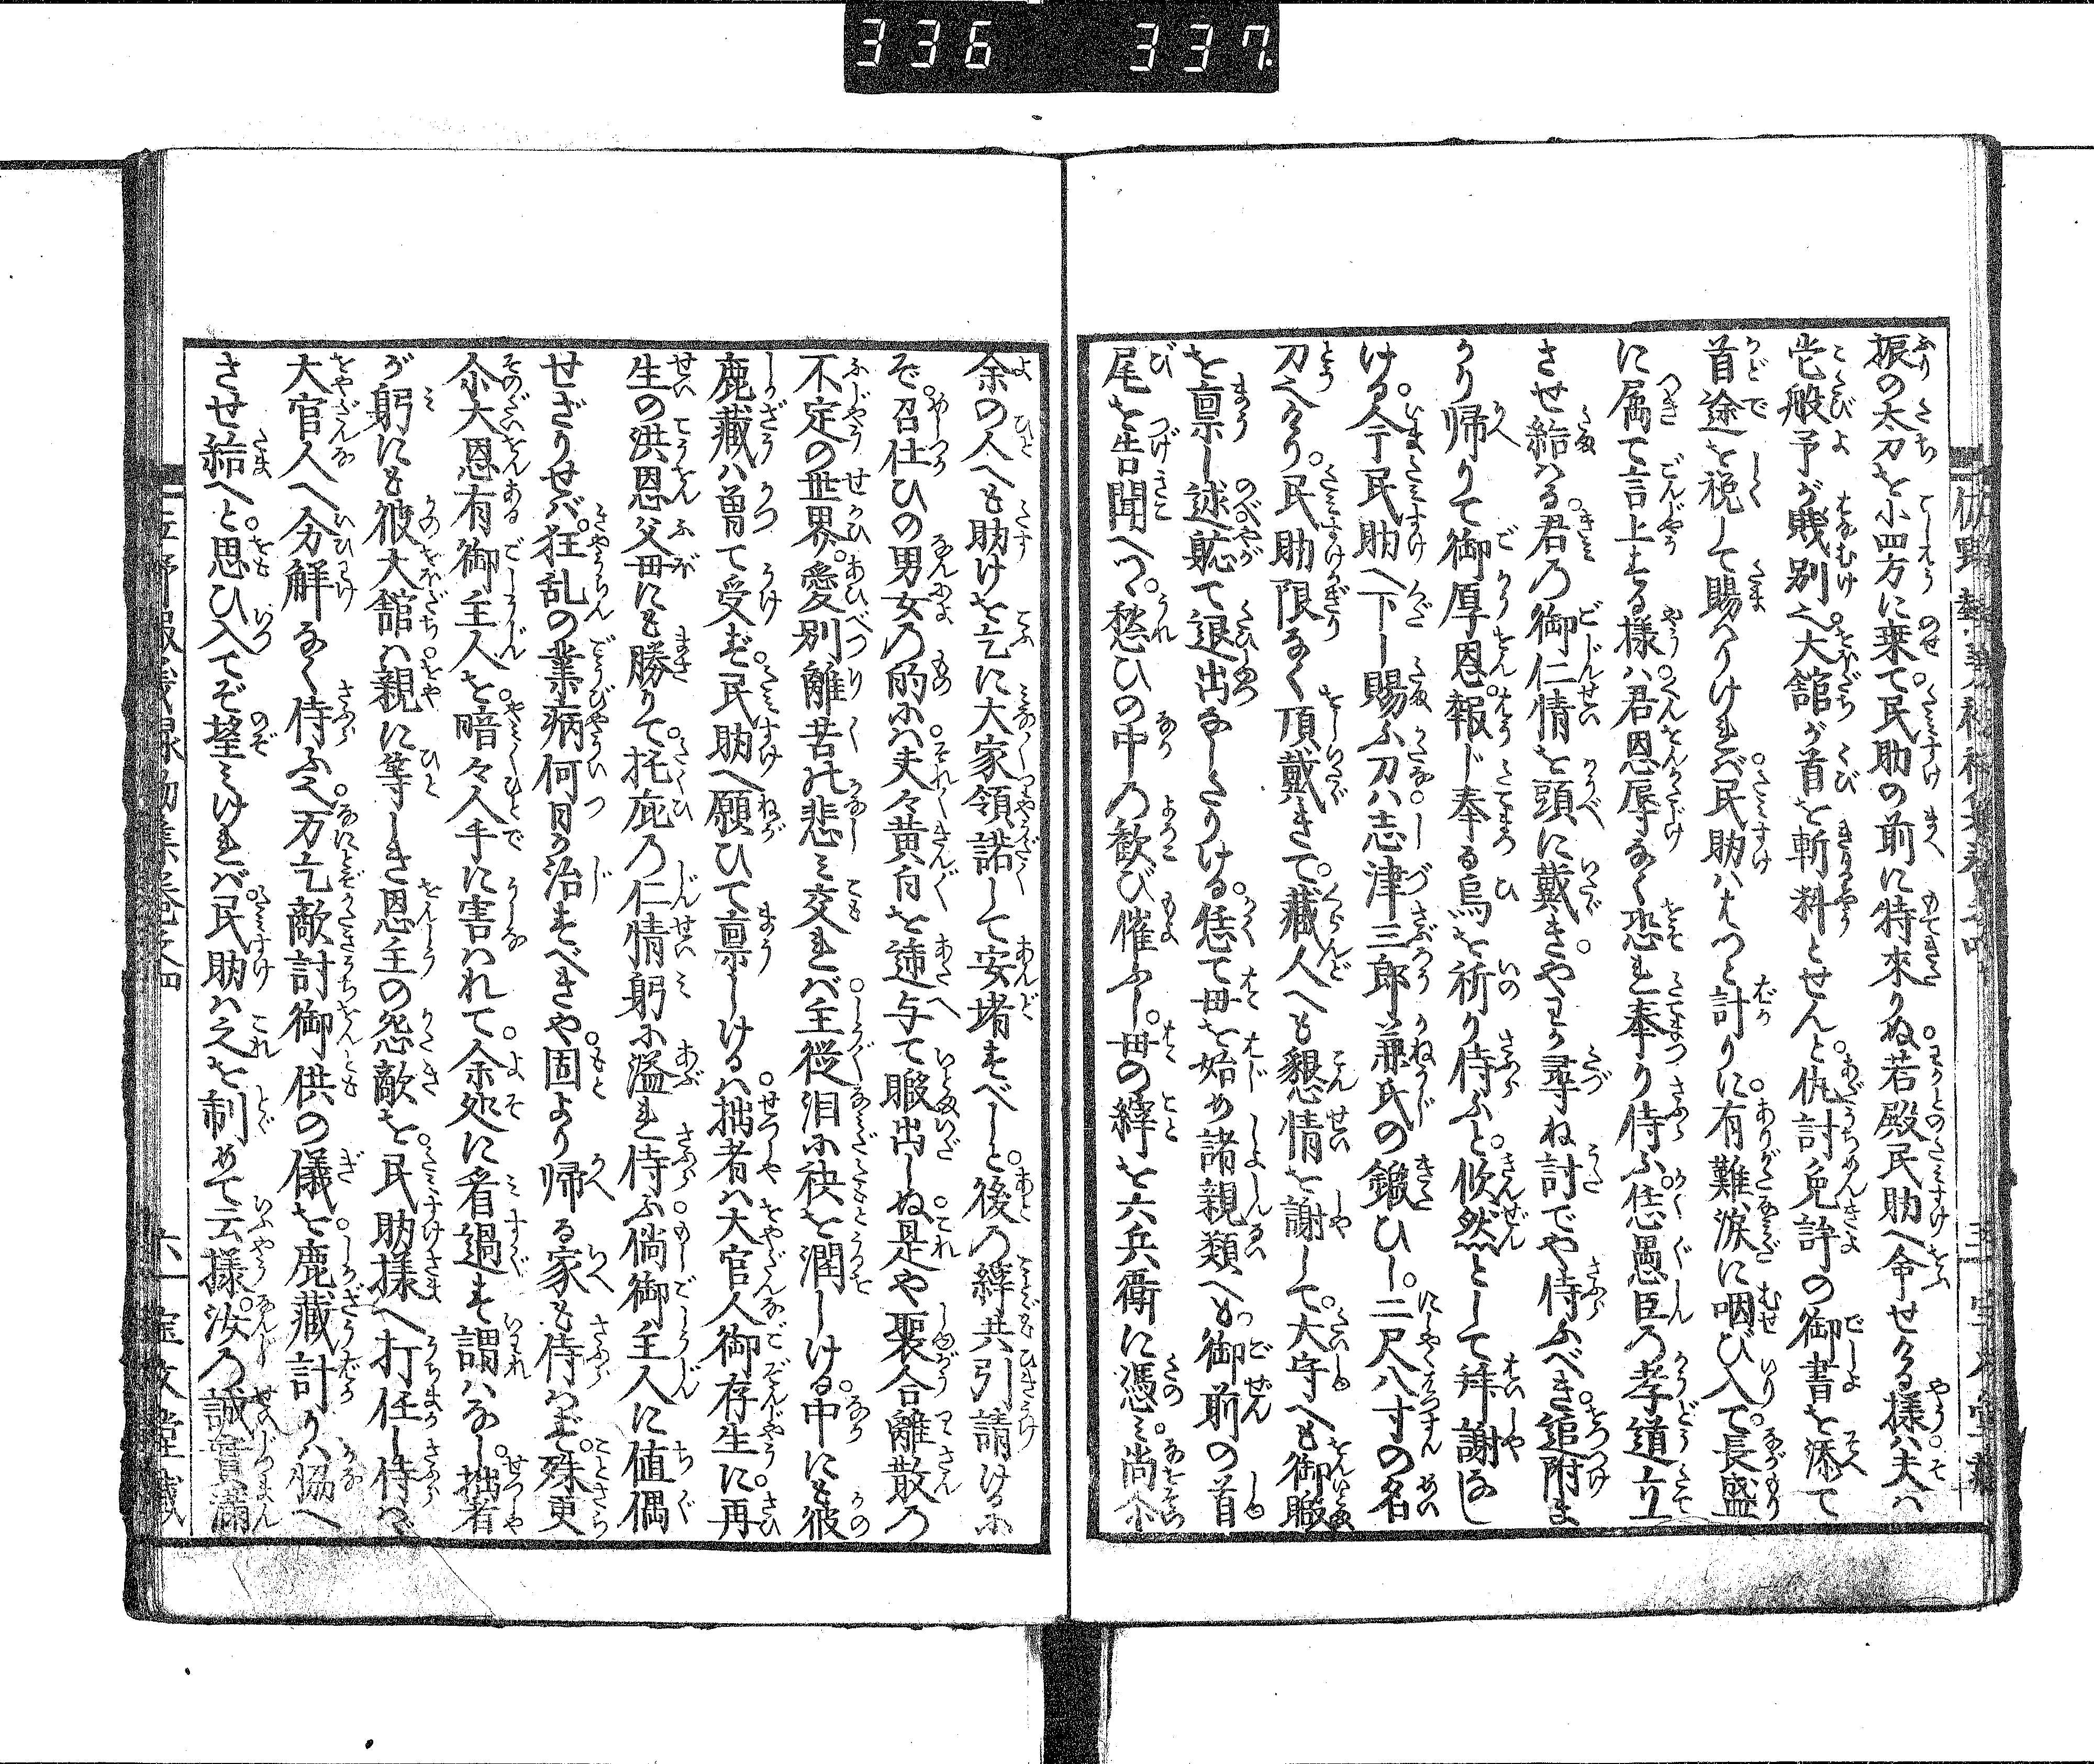 336 337
振の太刀を小四方に乗て民助の前に特來りぬ。若殿民助へ命せける様ハ夫ハ
壱般予が賎別之。大舘が首を斬料とせんと。仇討免許の御書を添て
首途を祝して賜ハりけれバ。民助ハはつと計りに。有難涙に咽び入て。長盛
に属て言上する様ハ。君恩辱なく恐れ奉り侍ふ。恁愚臣乃孝道立
させ給ハる。君乃御仁情を頭に戴き。やわか尋ね討でや侍ふべき。追附ま
かり帰りて御厚恩。報じ奉る烏を祈り侍ふと。欣然として拜謝なし
ける。今民助へ下し賜ふ刀ハ志津三郎兼氏の鍛ひし。二尺八寸の名
刀之けり。民助限なく頂戴きて。藏人へも懇情を謝して。大守へも御暇
を禀し述。䏻て退出なしたりける。恁て母を始め諸親類へも御前の首
尾を告聞へつ。愁ひの中乃歓び催ふし。母の縡を六兵衛に憑ミ。尚尓
余の人へも助けを乞に大家領諾して安堵すべしと。後乃縡共引請けるに
ぞ。召仕ひの男女乃的にハ夫々黄白を遖与て暇出しぬ。是や聚合離散乃
不定の世界。愛別離苦の悲ミ交れバ主従泪に袂を潤しける。中にも彼
鹿藏ハ曽て受ず。民助へ願ひて禀しけるハ。拙者ハ大官人御存生に。再
生の洪恩父母にも勝りて。托庇乃仁情躬に溢れ侍ふ。倘御主人に値偶
せざりせバ。狂乱の業病何日か治すべきや。固より帰る家も侍ハず。殊更
尒大恩有御主人を。暗々人手に害ハれて。余処に看過す謂ハなし。拙者
が躬にも彼大舘ハ。親に等しき恩主の怨敵を。民助様へ打任し侍ハゞ
大官人へ分解なく侍ふ之。万乞敵討御供の儀を。鹿藏計りハ恊へ
させ給へと。思ひ入てぞ望ミけれバ。民助ハ之を制めて云様。汝乃誠實滿